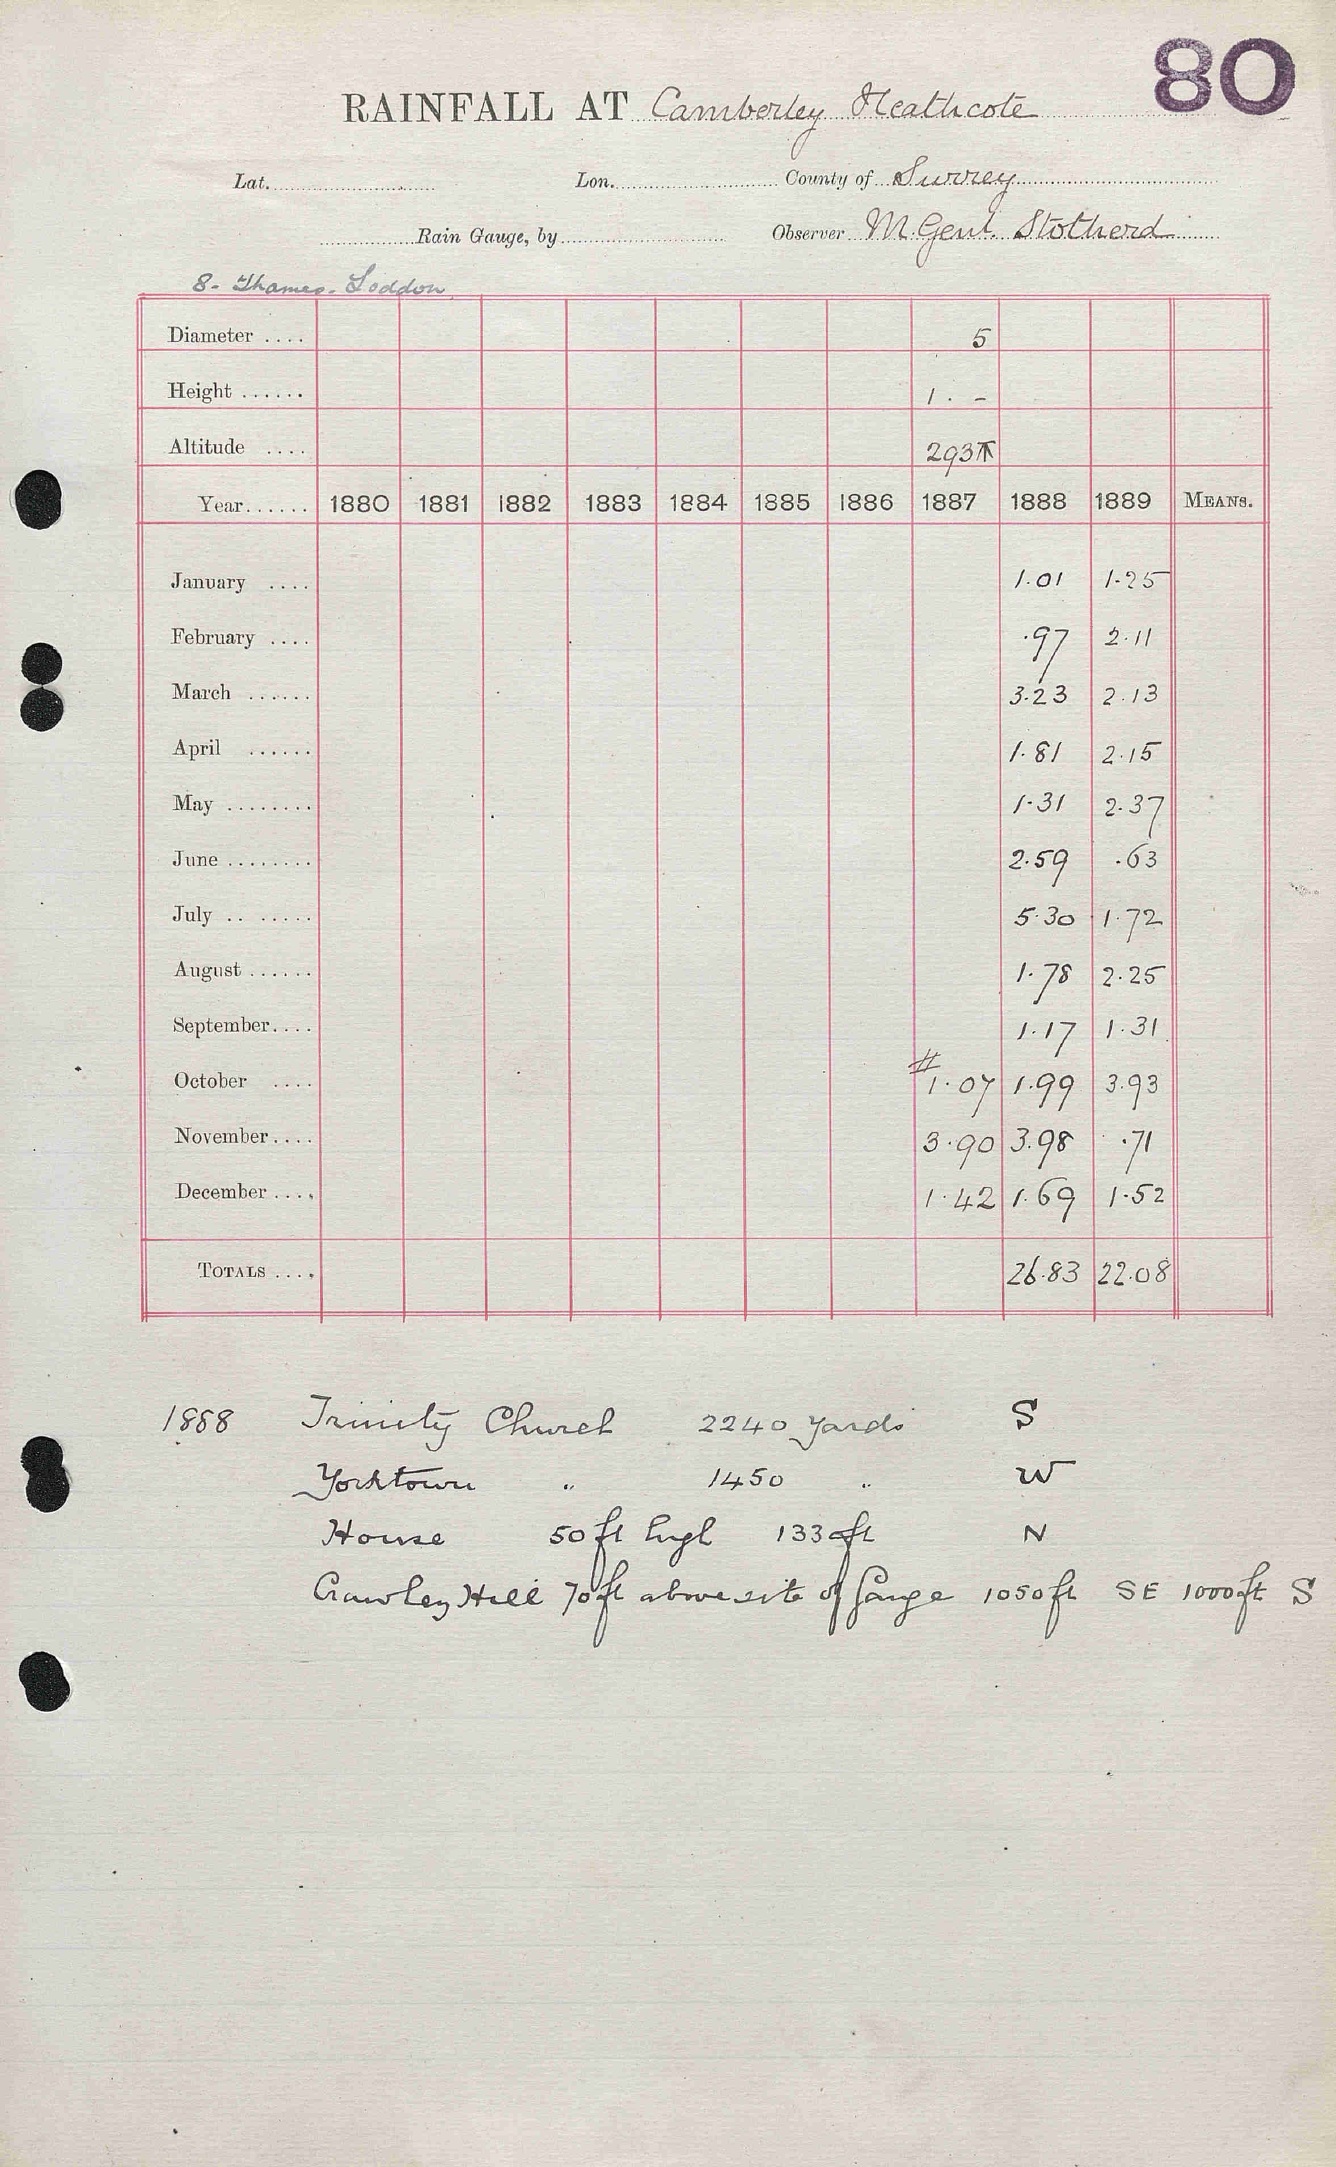 80
RAINFALL AT Camberley Heathcote
Lat. Lon. County of Surrey
Rain Gauge, by Observer M. Genl. Stotherd
8. Thames. Loddon
Diameter .... 5
Height ...... 1. -
Altitude .... 293
Year...... 1880 1881 1882 1883 1884 1885 1886 1887 1888 1889 MEANS.
January .... 1.01 1.25
February .... .97 2.11
March ...... 3.23 2.13
April ...... 1.81 2.15
May ........ 1.31 2.37
June ........ 2.59 .63
July .. ..... 5.30 1.72
August ...... 1.78 2.25
September.... 1.17 1.31
October .... # 1.07 1.99 3.93
November.... 3.90 3.98 .71
December .... 1.42 1.69 1.52
TOTALS .... 26.83 22.08
1888 Trinity Church 2240 yards S
Yorktown " 1450 " W
House 50 ft high 133 ft N
Crawley Hill 70 ft above site of Gauge 1050 ft SE 1000 ft S